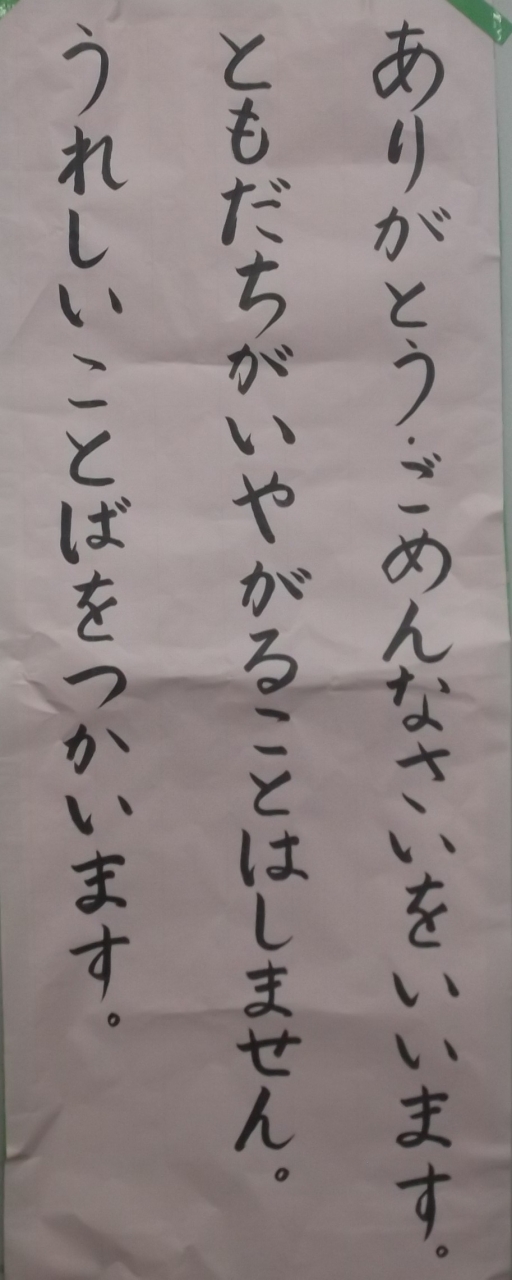 ありがとう・ごめんなさいをいいます。
ともだちがいやがることはしません。
うれしいことばをつかいます。